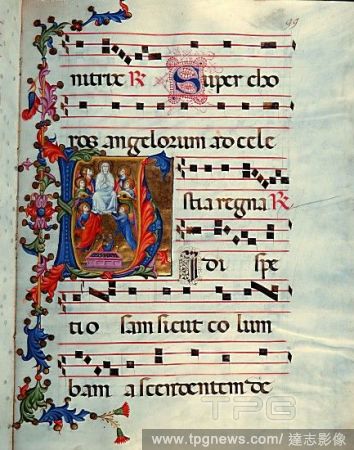 99
nitrix ℟ Super cho
ros angelorum ad cele
stia regna ℟
Vidi spe
tio sam sicut co lum
bam ascendentem de
TPG
www.tpgnews.com / 達志影像